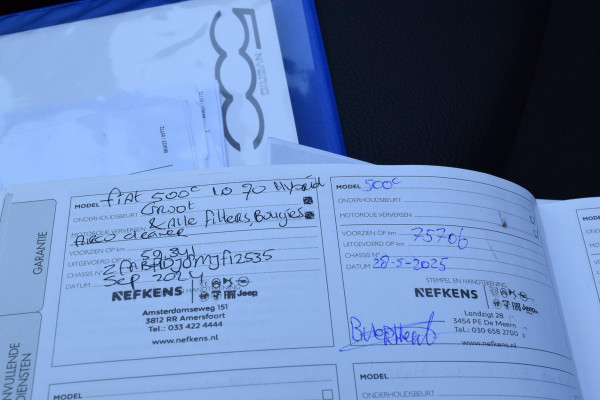 500
GARANTIE
MODEL fiat 500c 1.0 70 Hybrid
ONDERHOUDSBEURT Groot
MOTOROLIE VERVERSEN & Alle Filters, Bougies
Airco cleaner
VOORZIEN OP km
UITGEVOERD OP km 59.341
CHASSIS N°
DATUM Sep 2024
STEMPEL EN HANDTEKENING
NEFKENS
Jeep
Amsterdamseweg 151
3812 RR Amersfoort
Tel.: 033 422 4444
www.nefkens.nl
MODEL
MODEL 500c
ONDERHOUDSBEURT
MOTOROLIE VERVERSEN
VOORZIEN OP km
UITGEVOERD OP km 75706
CHASSIS N°
DATUM 28-5-2025
STEMPEL EN HANDTEKENING
NEFKENS
Jeep
Landzigt 28
3454 PE De Meern
Tel.: 030 658 2700
www.nefkens.nl
MODEL
ONDERHOUDSBEURT
MODEL
ONDERHO
MOTORO
VOORZI
UITGEV
CHASSI
DATUM
NVULLENDE
DIENSTEN